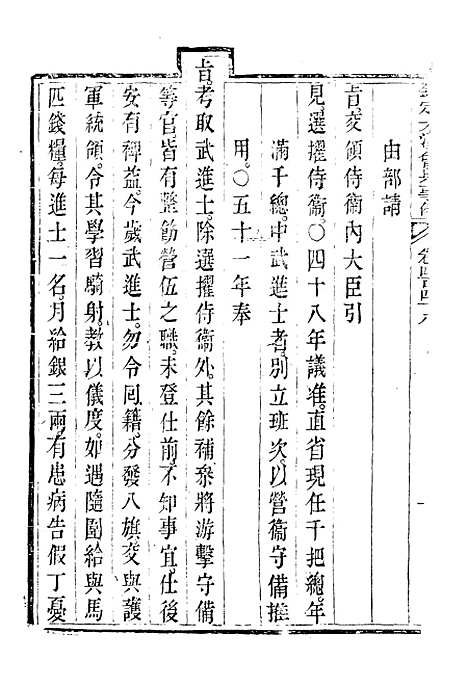 由部請
旨。交領侍衞內大臣引
見。選擢侍衞。○四十八年議准。直省現任千把總。年
滿千總。中武進士者。別立班次。以營衞守備推
用。○五十一年奉
旨。考取武進士。除選擢侍衞外。其餘補叅將游擊守備
等官。皆有整飭營伍之職。未登仕前。不知事宜。仕後
安有裨益。今歲武進士。勿令回籍。分發八旗。交與護
軍統領。令其學習騎射。教以儀度。如遇隨圍給與馬
匹錢糧。每進士一名。月給銀三兩。有患病告假丁憂